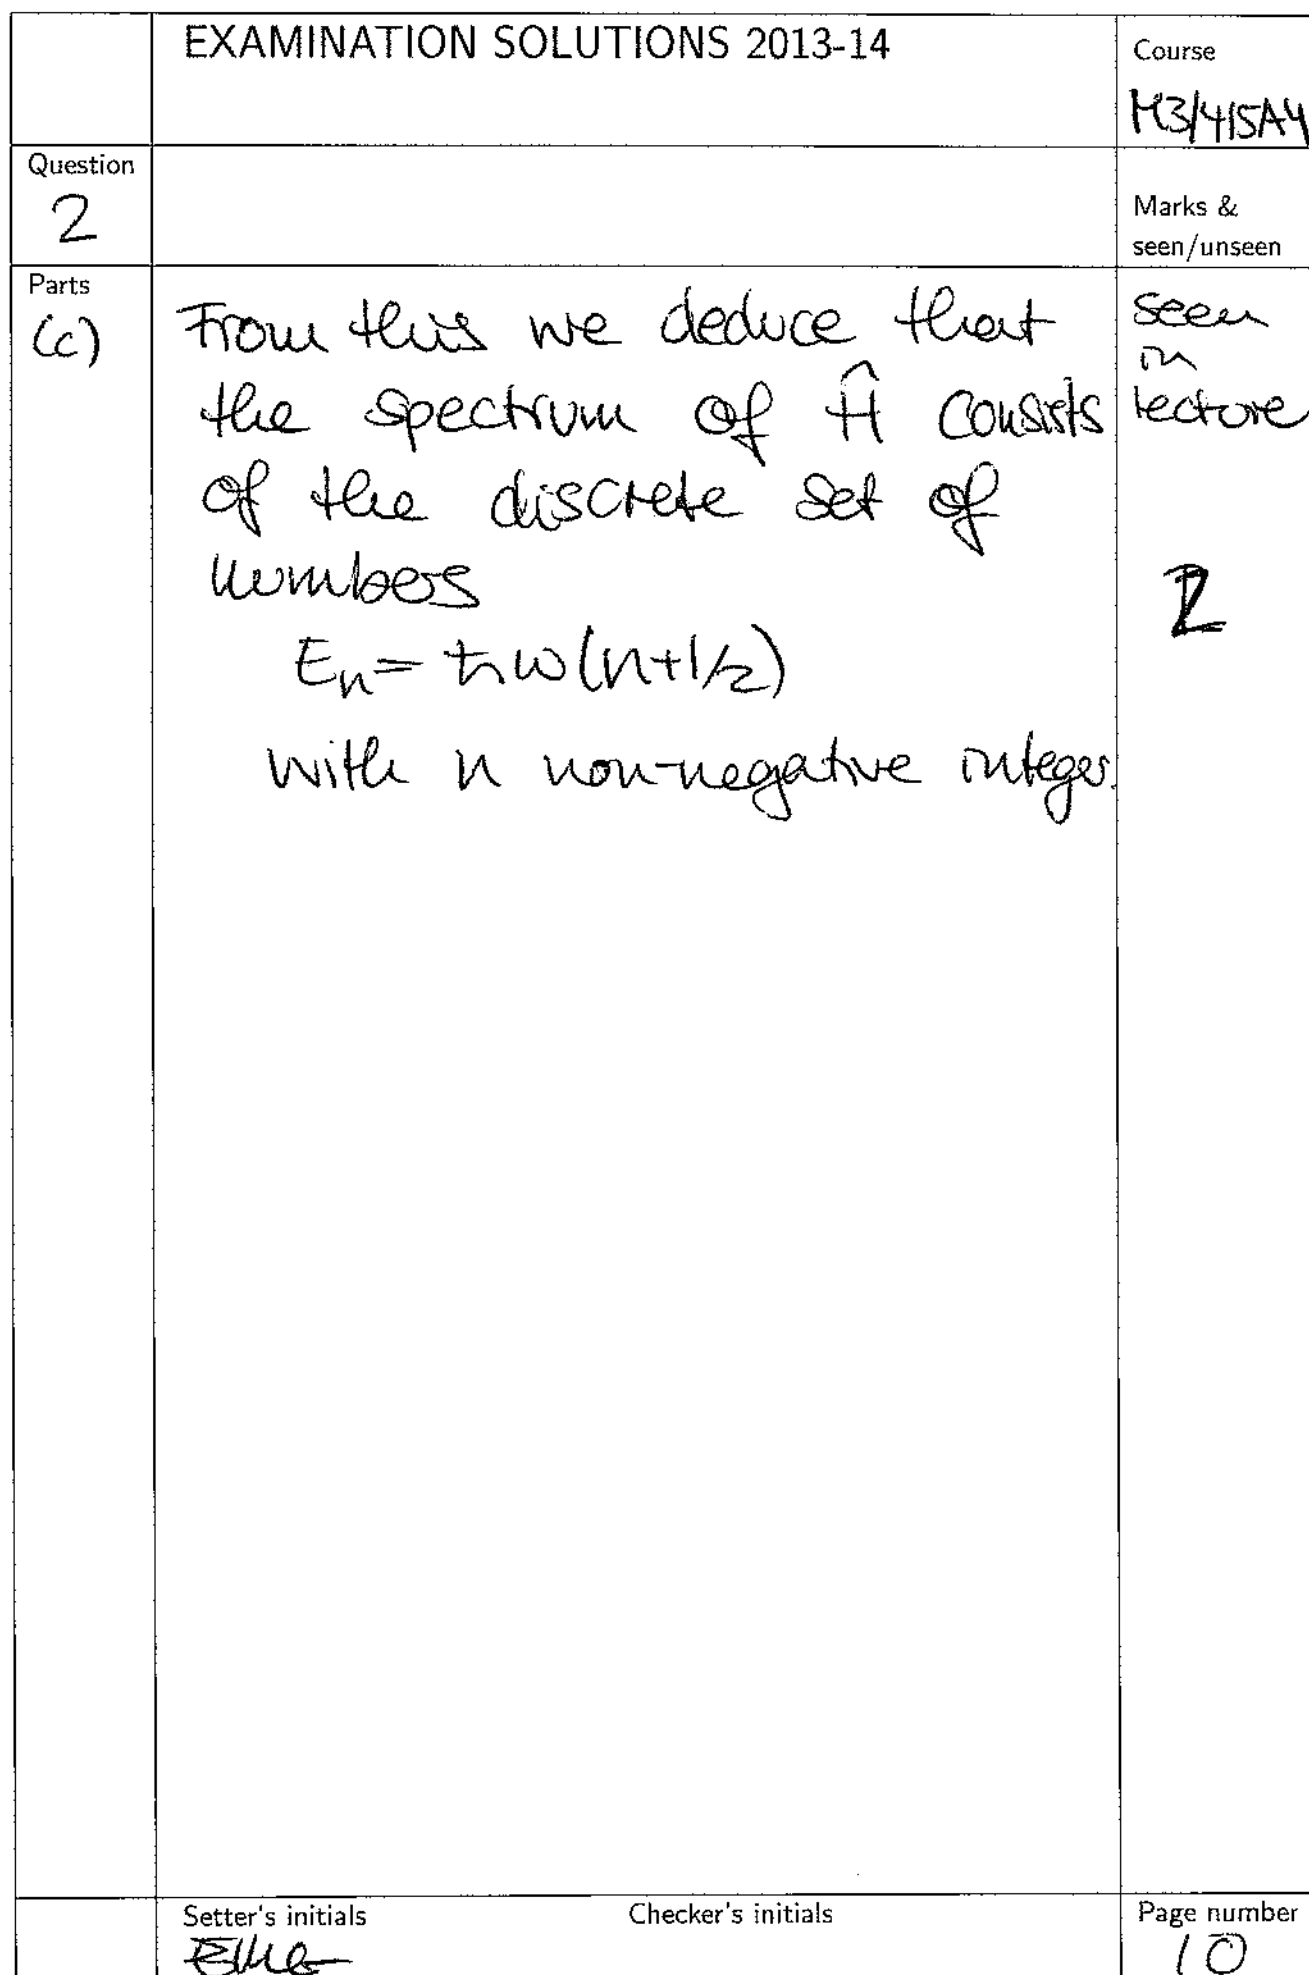 EXAMINATION SOLUTIONS 2013-14
Course
M3/415A4
Question
2
Marks &
seen/unseen
Parts
(c)
From this we deduce that
the spectrum of Ĥ consists
of the discrete set of
numbers
Eₙ = ħω(n+1/2)
with n non-negative integer.
seen
in
lecture
2
Setter's initials
Checker's initials
Page number
10